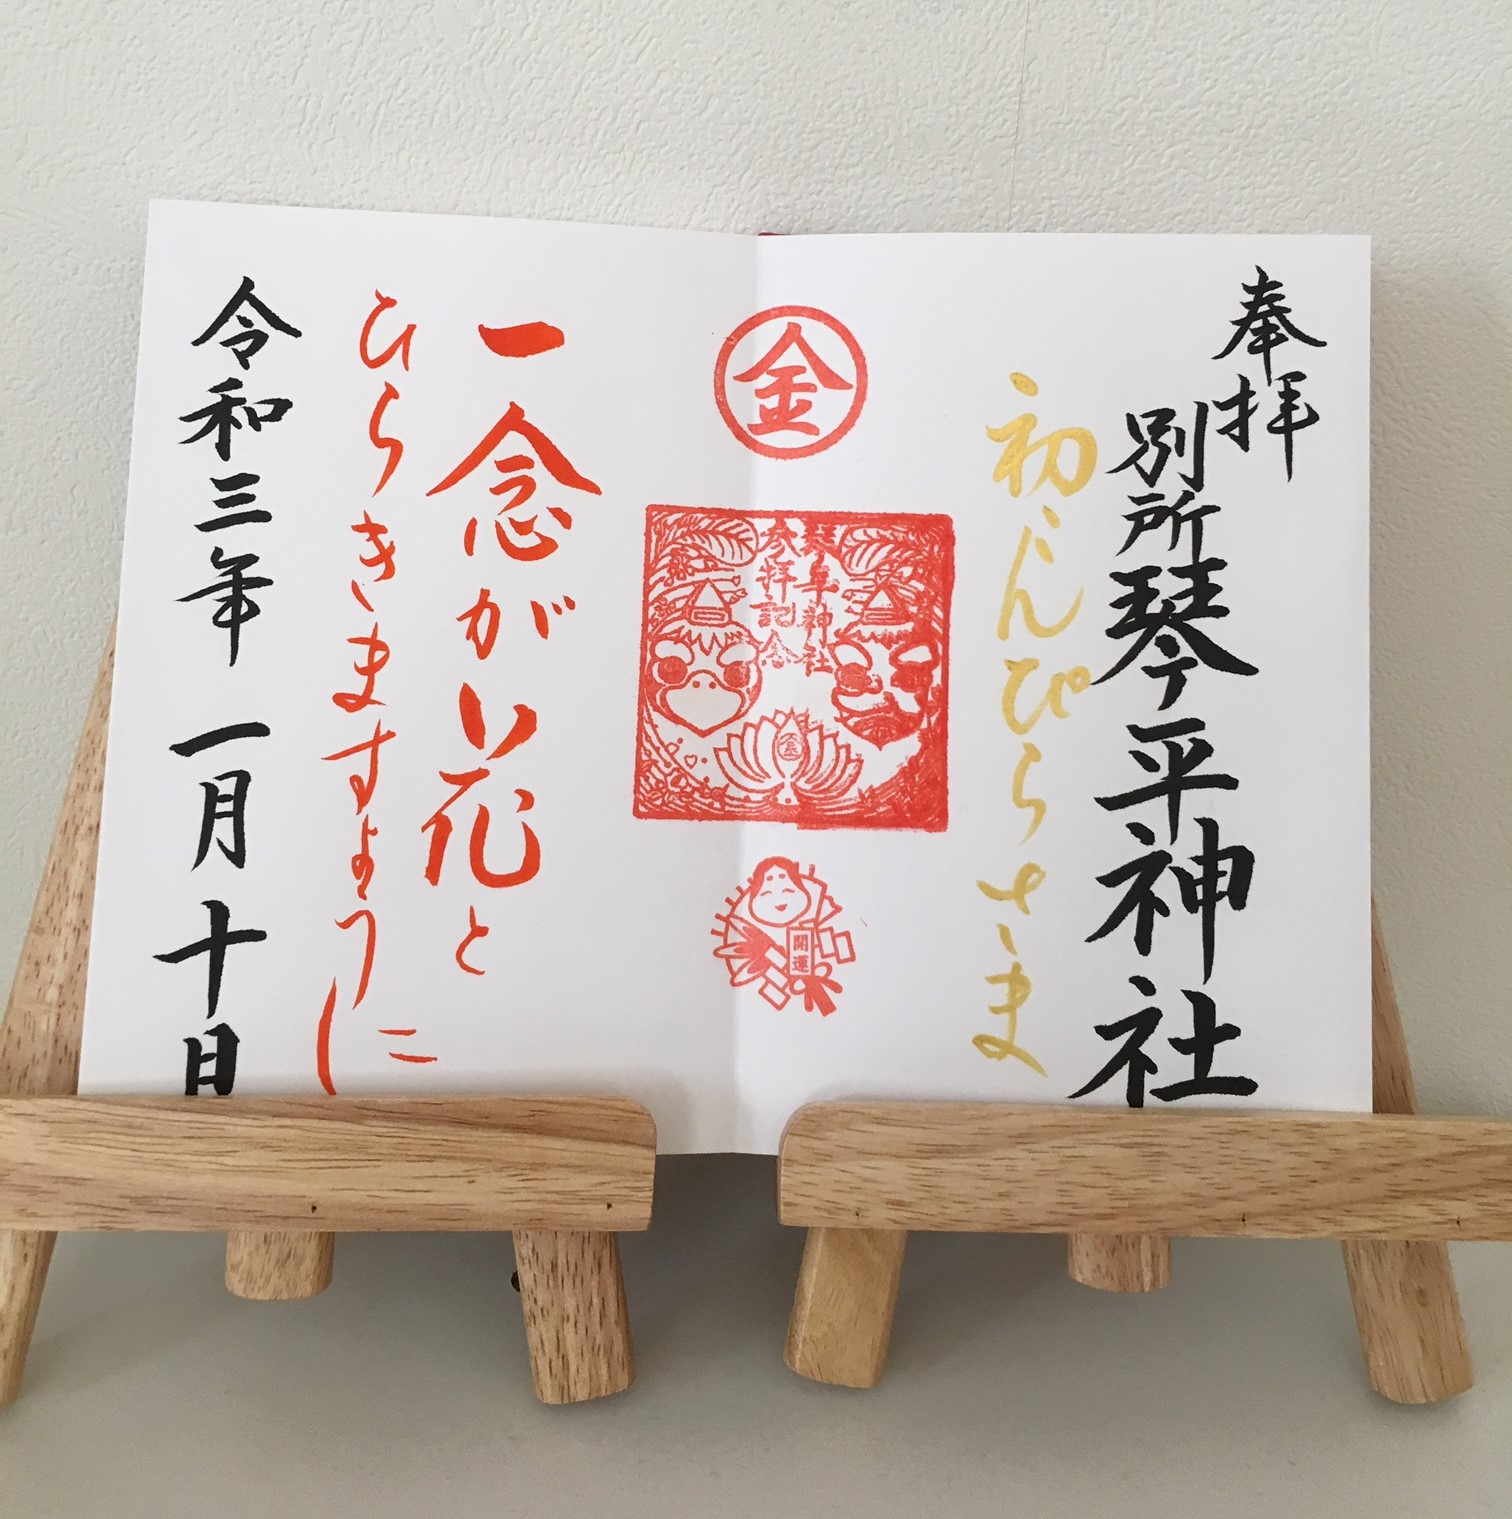 奉拝
別所琴平神社
初こんぴらさま
金
琴平神社
参拝記念
金
開運
一念がい花と
ひらきますように
令和三年 一月十日